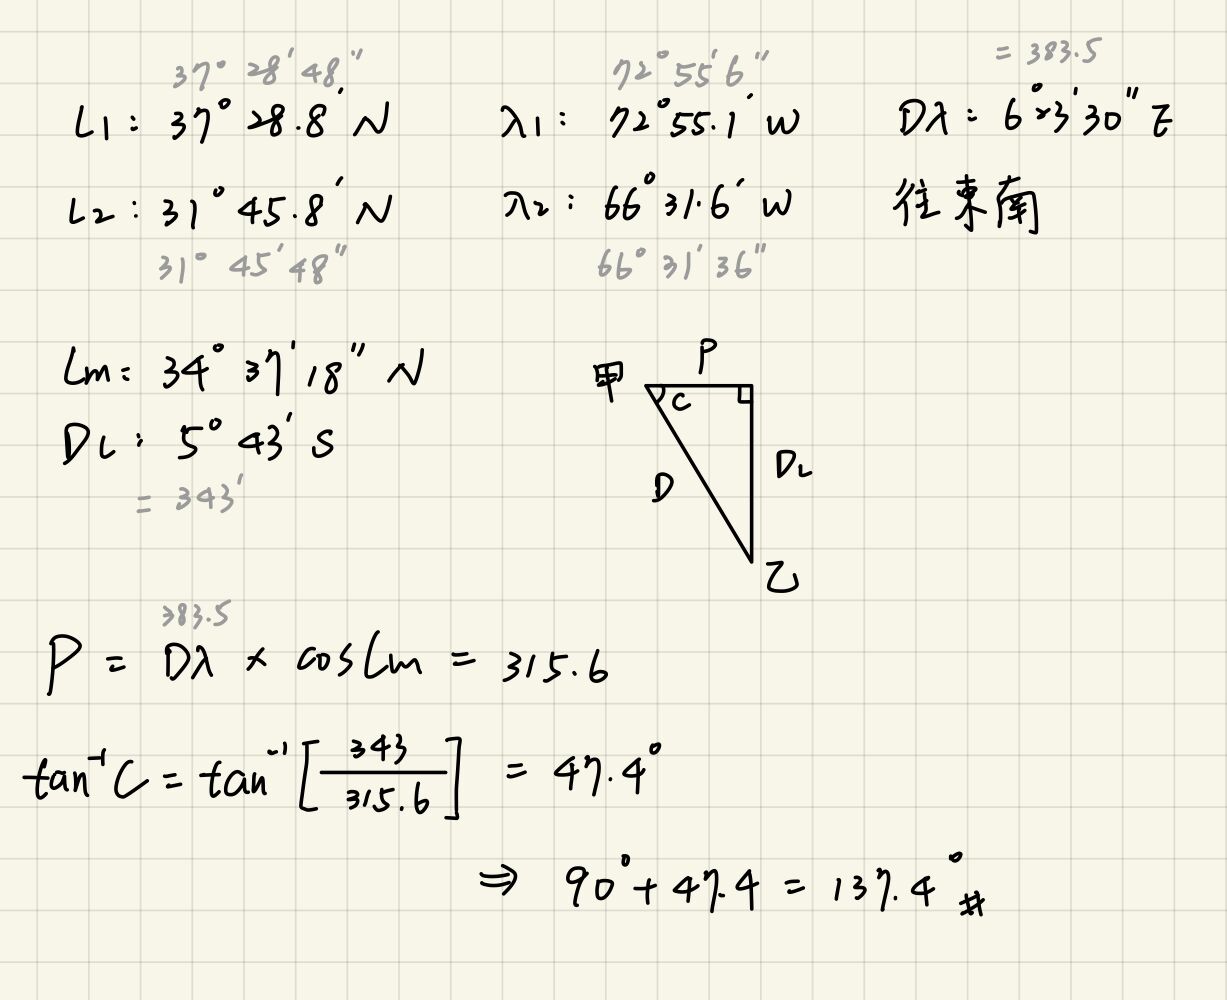 37° 28' 48" 72° 55' 6" = 383.5
L1: 37° 28.8' N λ1: 72° 55.1' W Dλ: 6° 23' 30" E
L2: 31° 45.8' N λ2: 66° 31.6' W 往東南
31° 45' 48" 66° 31' 36"
Lm: 34° 37' 18" N
DL: 5° 43' S
= 343'
甲 P
C
D DL
乙
383.5
P = Dλ × cos Lm = 315.6
tan⁻¹ C = tan⁻¹ [343/315.6] = 47.4°
⇒ 90° + 47.4 = 137.4° #